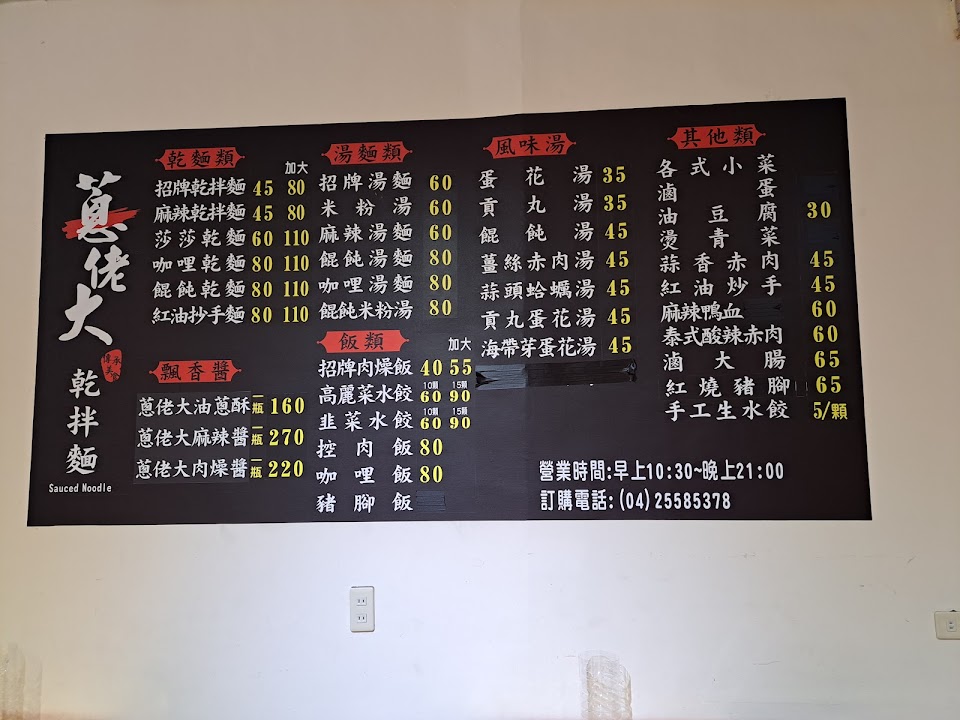 蔥佬大
傳承美食
乾拌麵
Sauced Noodle
乾麵類
加大
招牌乾拌麵 45 80
麻辣乾拌麵 45 80
莎莎乾麵 60 110
咖哩乾麵 80 110
餛飩乾麵 80 110
紅油抄手麵 80 110
飄香醬
蔥佬大油蔥酥 一瓶 160
蔥佬大麻辣醬 一瓶 270
蔥佬大肉燥醬 一瓶 220
湯麵類
招牌湯麵 60
米粉湯 60
麻辣湯麵 60
餛飩湯麵 80
咖哩湯麵 80
餛飩米粉湯 80
飯類
加大
招牌肉燥飯 40 55
10顆 15顆
高麗菜水餃 60 90
10顆 15顆
韭菜水餃 60 90
控肉飯 80
咖哩飯 80
豬腳飯
風味湯
蛋花湯 35
貢丸湯 35
餛飩湯 45
薑絲赤肉湯 45
蒜頭蛤蠣湯 45
貢丸蛋花湯 45
海帶芽蛋花湯 45
其他類
各式小菜
滷蛋
油豆腐 30
燙青菜
蒜香赤肉 45
紅油炒手 45
麻辣鴨血 60
泰式酸辣赤肉 60
滷大腸 65
紅燒豬腳 65
手工生水餃 5/顆
營業時間:早上10:30~晚上21:00
訂購電話:(04)25585378